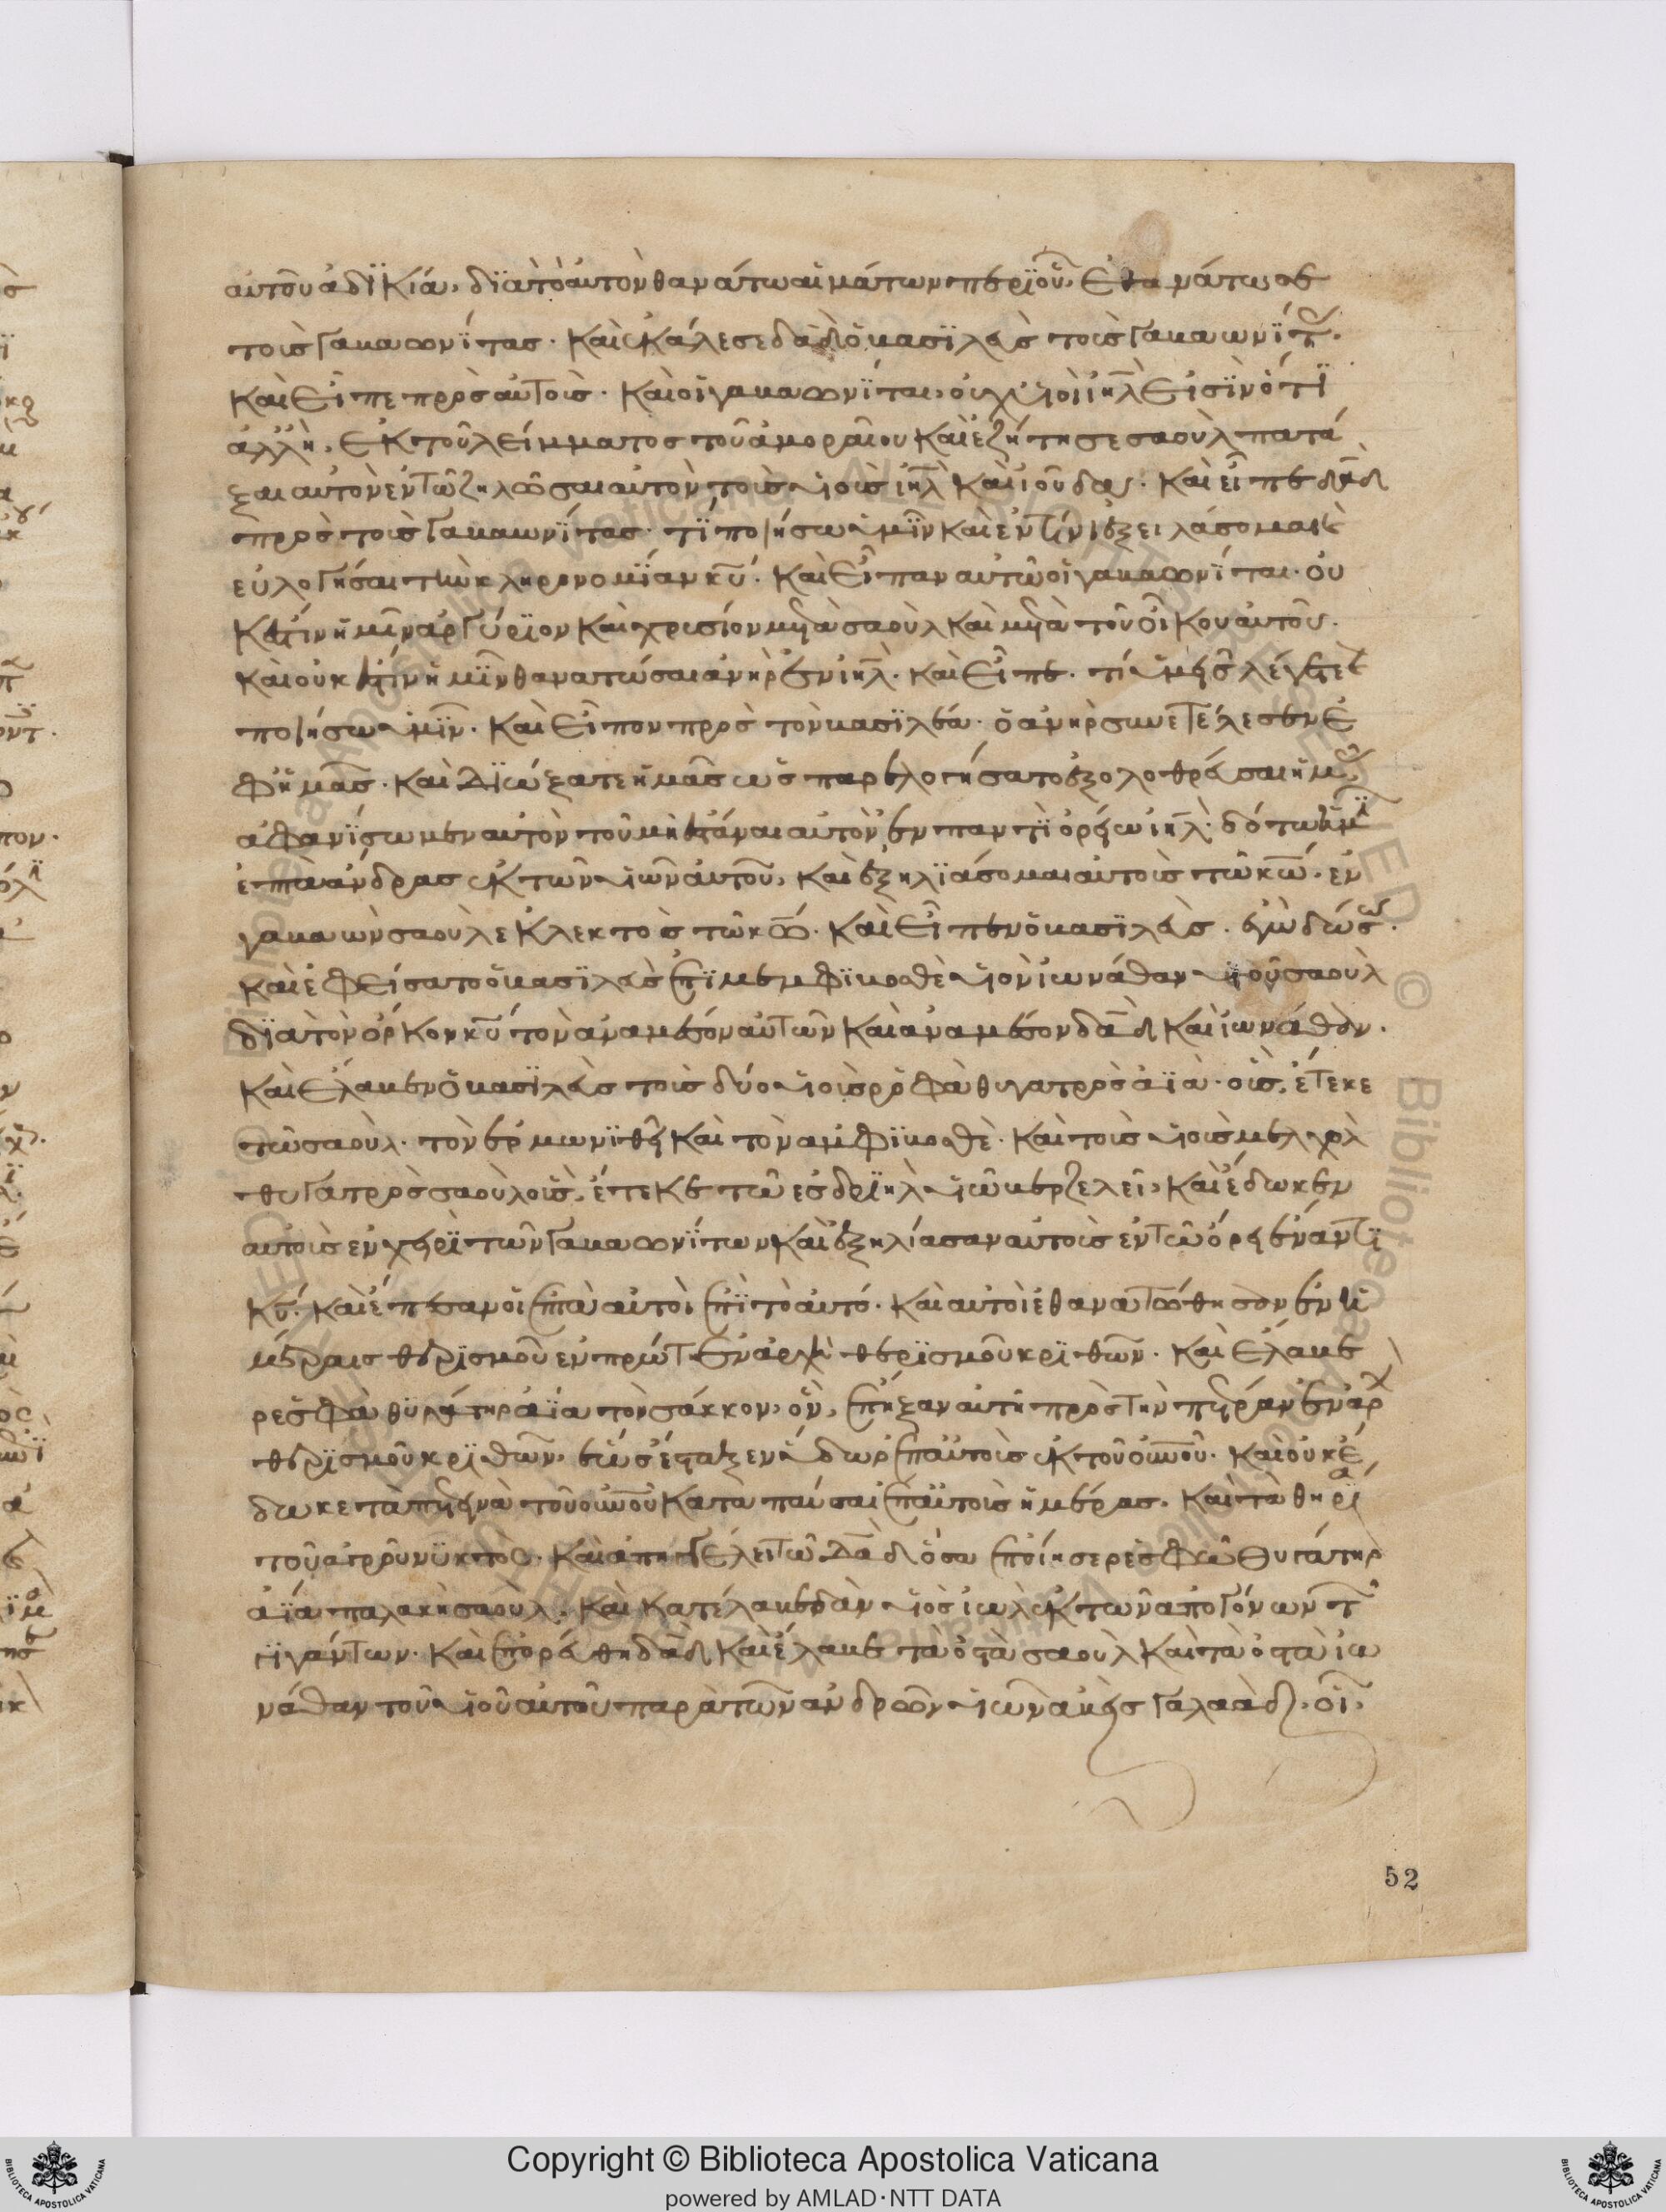 αὐτοῦ ἀδϊκία, δϊὰ τὸ αὐτὸν θανάτω αἱμάτων περϊοῦ, ἐθανάτωσε
τοὺς γαβαωνΐτας. καὶ ἐκάλεσε δᾱδ ὁ βασϊλεὺς τοὺς γαβαωνΐτ
καὶ εἶπε πρὸς αὐτοὺς. καὶ οἱ γαβαωνΐται, οὐχ υἱοὶ ιηλ εἰσὶν ὅτϊ
ἀλλ ἢ, ἐκ τοῦ λείμματος τοῦ ἀμοραίου καὶ ἐζήτησε σαοὺλ πατά
ξαι αὐτὸν ἐν τῶ ζηλῶσαι αὐτὸν τοὺς υἱοὺς ιηλ καὶ ἰούδας. καὶ εἶπε δᾱδ
πρὸς τοὺς γαβαωνΐτας. τΐ ποιήσω ὑμῖν καὶ ἐν τίνι ἐξειλάσομαι καὶ
εὐλογήσαι τὴν κληρονομΐαν κυ. καὶ εἶπαν αὐτῶ οἱ γαβαωνΐται. οὐ
κ ἔστιν ἡμῖν ἀργύρϊον καὶ χρυσίον μετὰ σαοὺλ καὶ μετὰ τοῦ οἴκου αὐτοῦ.
καὶ οὐκ ἔστιν ἡμῖν θανατώσαι ἀνὴρ ἐν ιηλ. καὶ εἶπε. τί ὑμεῖς λέγετε
ποιήσω ὑμῖν. καὶ εἶπον πρὸς τὸν βασϊλέα. ὁ ἀνὴρ συνετέλεσεν ἐ
φ ἡμᾶς. καὶ ἐδΐωξατε ἡμᾶς ὡς παρελογήσατο ἐξολοθρεύσαι ἡμ
ἀφανΐσωμεν αὐτὸν τοῦ μὴ ἑστάναι αὐτὸν ἐν παντϊ ὁρείω ιηλ. δότω ἡμϊ
ἑπτὰ ἄνδρας ἐκ τῶν υἱῶν αὐτοῦ, καὶ ἐξηλϊάσομαι αὐτοὺς τῶ κω. ἐν
γαβαὼν σαοὺλ ἐκλεκτοὺς τῶ κω. καὶ εἶπεν ὁ βασϊλεὺς. ἐγὼ δώσω.
καὶ ἐφείσατο ὁ βασϊλεὺς ἐπϊ μεμφϊβοσθὲ υἱὸν ἰωνάθαν υἱοῦ σαοὺλ
δϊὰ τὸν ὅρκον κυ τὸν ἀναμέσον αὐτῶν καὶ ἀναμέσον δᾱδ καὶ ἰωνάθαν.
καὶ ἔλαβεν ὁ βασϊλεὺς τοὺς δύο υἱοὺς ρεσφὰ θυγατρὸς ἀϊὰ. οὓς, ἔτεκε
τῶ σαοὺλ. τὸν ἐρμωνϊθεῖ καὶ τὸν ἀμφϊβοσθὲ. καὶ τοὺς υἱοὺς μελχὸλ
θυγατρὸς σαοὺλ οὓς, ἔτεκε τῶ ἐσδρϊὴλ υἱῶ βερζελεῖ, καὶ ἔδωκεν
αὐτοὺς ἐν χειρϊ τῶν γαβαωνΐτων καὶ ἐξηλίασαν αὐτοὺς ἐν τῶ ὄρει ἔναντϊ
κυ. καὶ ἔπεσαν οἱ ἑπτὰ αὐτοὶ ἐπϊ τὸ αὐτό. καὶ αὐτοὶ ἐθανατώθησαν ἐν ἡ
μέραις θερϊσμοῦ ἐν πρώτ ἐν ἀρχῆ θερϊσμοῦ κρϊθῶν. καὶ ἔλαβε
ρεσφὰ θυγάτηρ ἀϊὰ τὸν σάκκον, ὃν, ἔπηξαν αὐτῆ πρὸς τὴν πέτραν ἐν ἀρχ
θερϊσμοῦ κρϊθῶν, ἕως ἔσταξεν ὕδωρ ἐπ αὐτοὺς ἐκ τοῦ οὐνοῦ. καὶ οὐκ ἔ
δωκε τὰ πετεινὰ τοῦ οὐνοῦ καταπαύσαι ἐπ αὐτοὺς ἡμέρας. καὶ τὰ θηρϊα
τοῦ ἀγροῦ νυκτὸς. καὶ ἀπηγγέλει τῶ δᾱδ ὅσα ἐποίησε ρεσφὰ θυγάτηρ
ἀϊὰ παλακὴ σαοὺλ. καὶ κατέλαβε δὰν υἱὸς ἰωὰς ἐκ τῶν ἀπογόνων τ
γϊγάντων. καὶ ἐπορεύθη δᾱδ καὶ ἔλαβε τὰ ὀστὰ σαοὺλ καὶ τὰ ὀστὰ ἰω
νάθαν τοῦ υἱοῦ αὐτοῦ παρὰ τῶν ἀνδρῶν υἱῶν ἀβεῖς γαλαὰδ, οἳ,
52
Copyright © Biblioteca Apostolica Vaticana
powered by AMLAD·NTT DATA